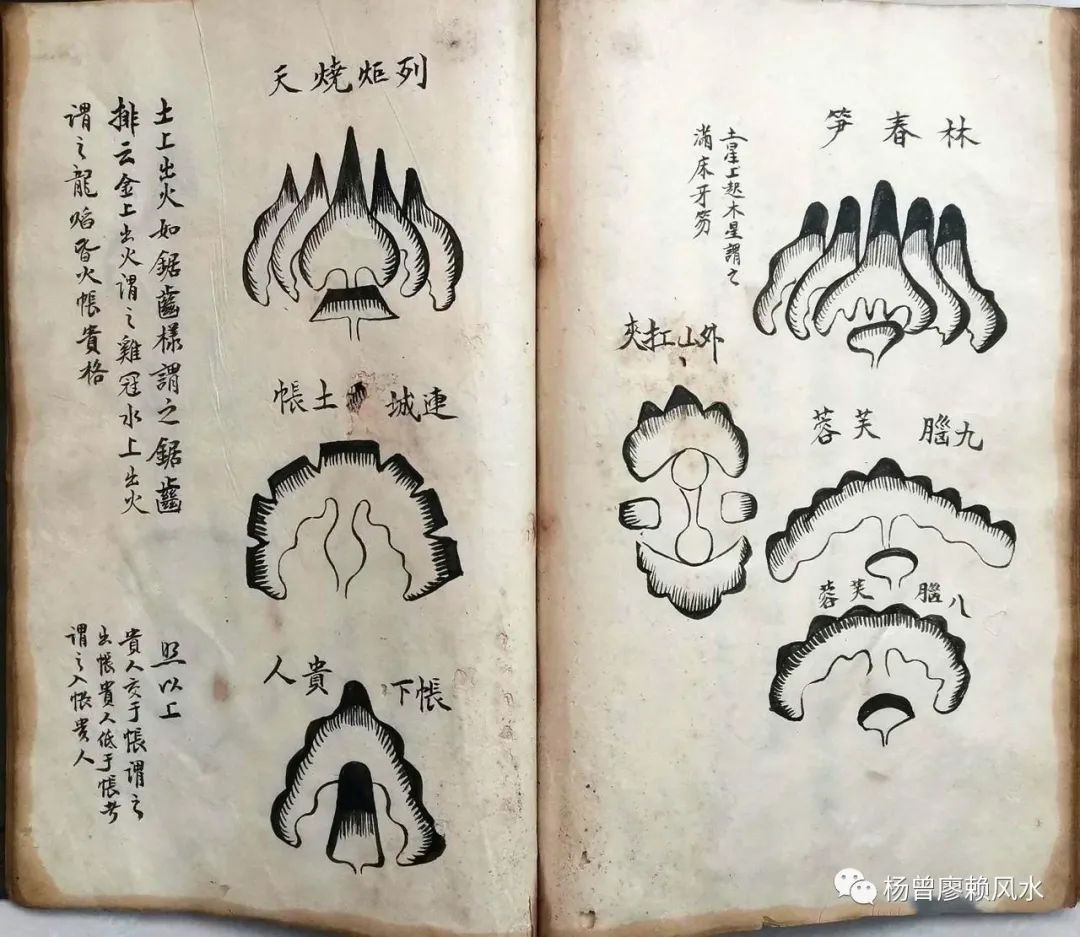 林春笋
土星上起木星謂之
滿床牙笏
外山扛夾
九腦芙蓉
八腦芙蓉
列炬燒天
土上出火如鋸齒樣謂之鋸齒
排云金上出火謂之雞冠水上出火
謂之龍焰皆火帳貴格
連城土帳
帳下貴人
照以上
貴人亥于帳謂之
出帳貴人低于帳者
謂之入帳貴人
杨曾廖赖风水